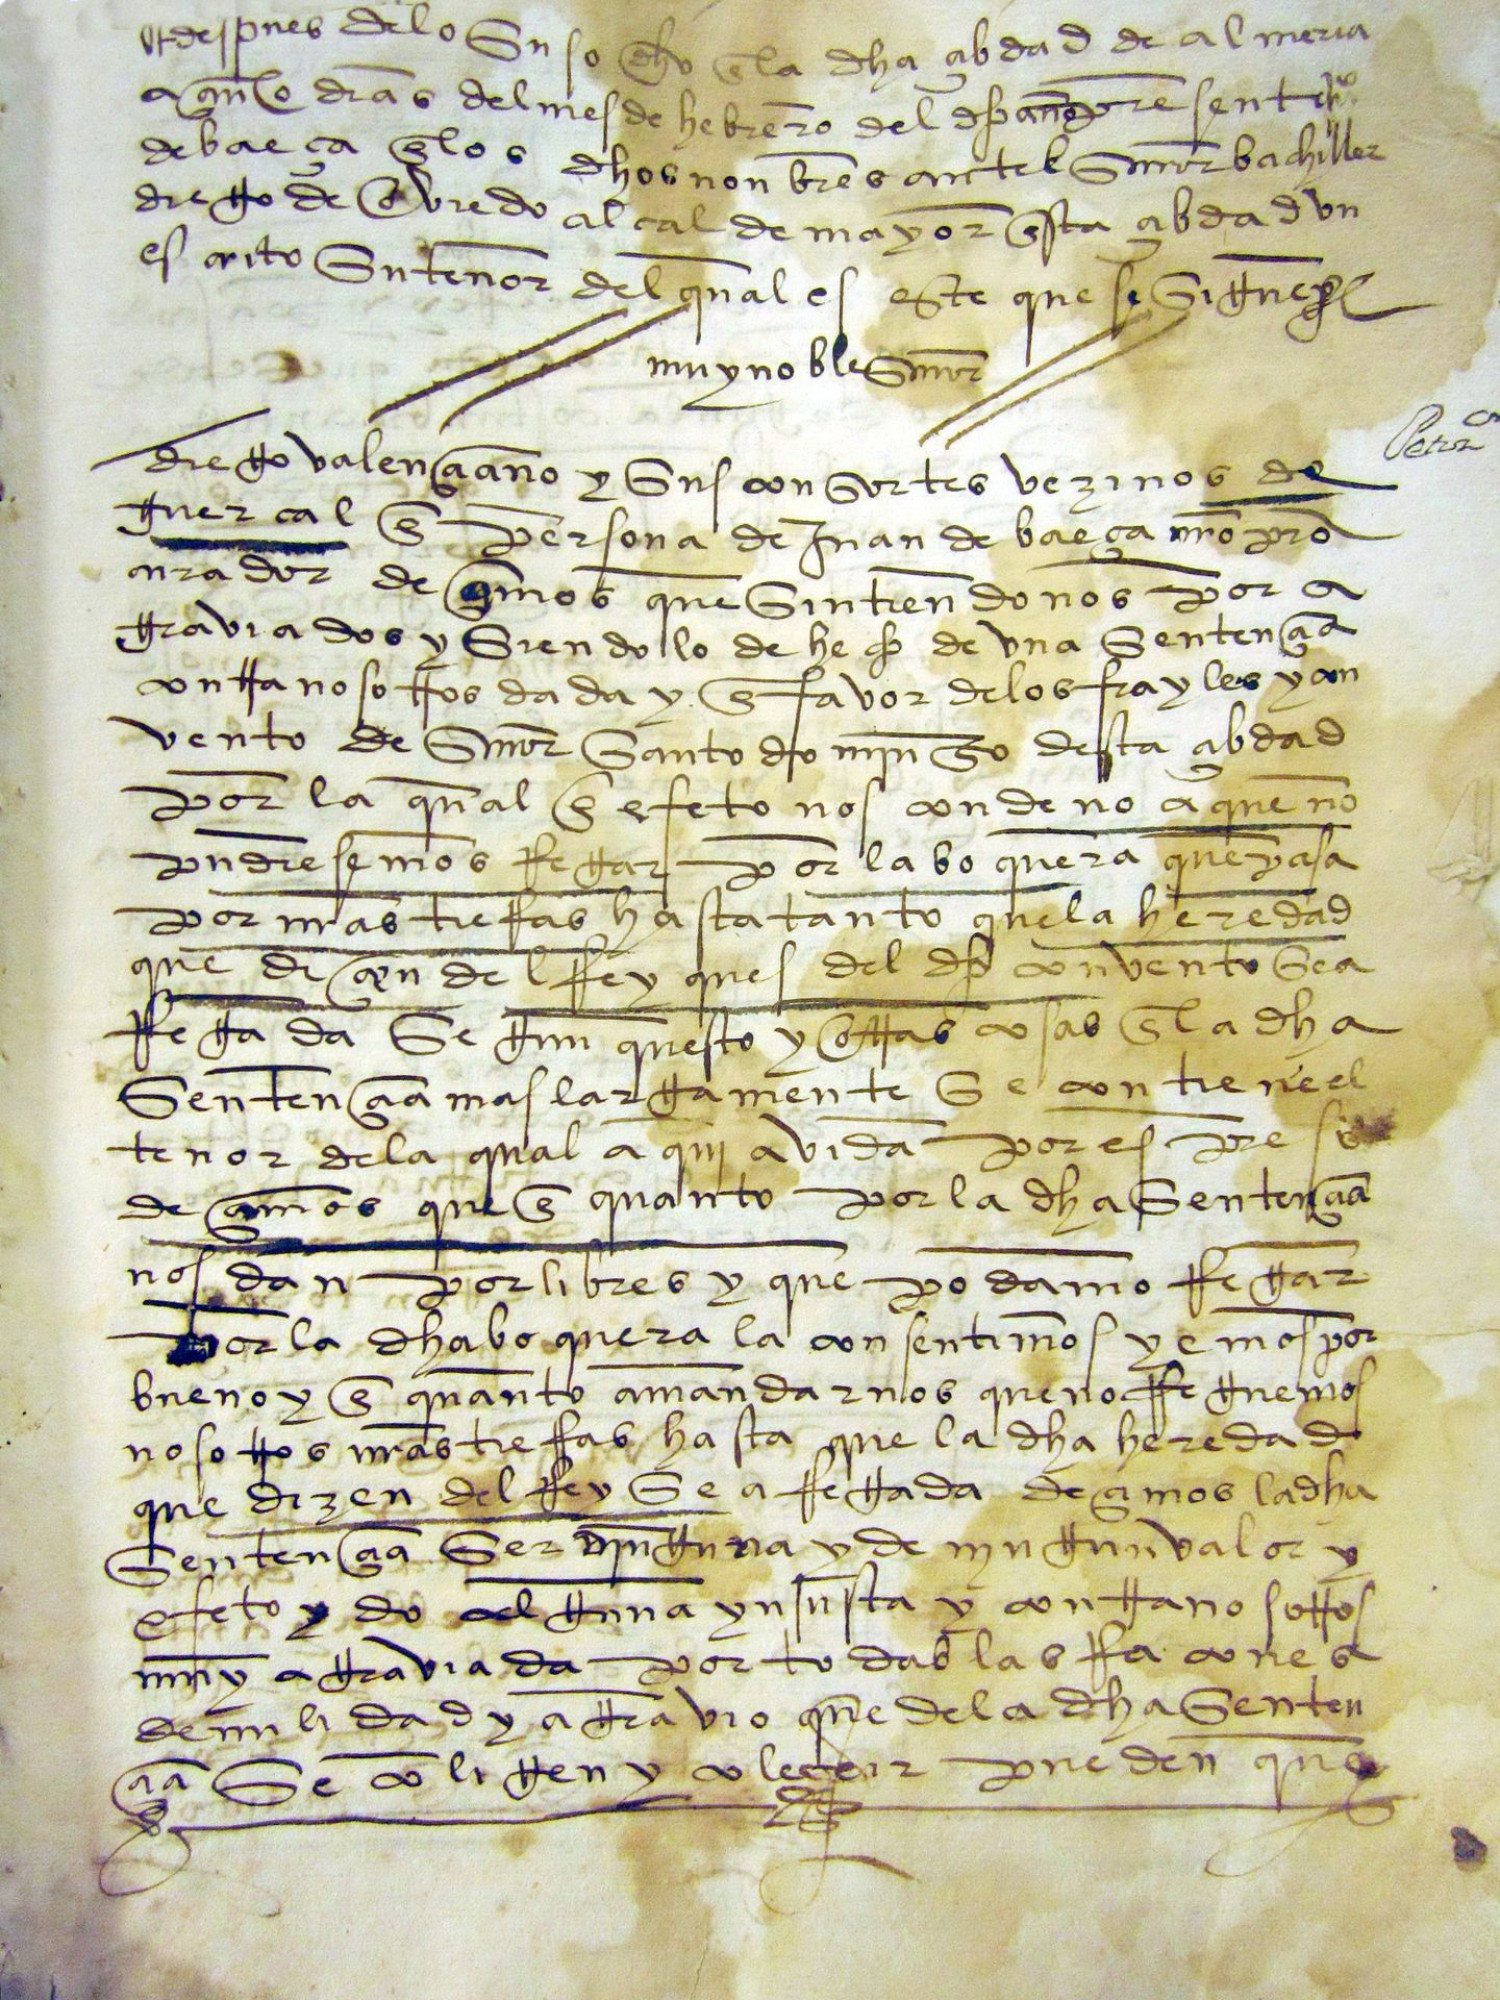 E despues delo suso dho en la dha çibdad de almeria
a çinco dias del mes de hebrero del dho año presento juº
de baeça en los dhos nonbres antel señor bachiller
diego de oviedo alcalde mayor en esta çibdad un
escrito su tenor del qual es este que se sigue
muy noble señor
diego valençiano y sus consortes vezinos de
guercal en persona de Juan de baeça nro pro
curador deçimos que sintiendonos por a
graviados y siendolo de hecho de una sentençia
contra nosotros dada y en favor delos frayles y con
vento de señor santo domingo desta çibdad
por la qual en efeto nos condeno a que no
pudiesemos rregar por la boquera que pasa
por nras tierras hasta tanto quela heredad
que diçen del rrey ques del dho convento sea
rregada segun questo y otras cosas en la dha
sentençia mas largamente se contiene el
tenor dela qual aqui avida por espreso
deçimos que en quanto por la dha sentençia
nos dan por libres y que podamos rregar
por la dha boquera la consentimos y emos por
bueno y en quanto a mandarnos que no rreguemos
nosotros nras tierras hasta que la dha heredad
que dizen del rrey sea rregada deçimos la dha
sentençia ser ninguna y de ningun valor y
efeto y do alguna ynjusta y contra nosotros
muy agraviada por todas las rraçones
de nulidad y agravio que dela dha senten
çia se coligen y colegir pueden que